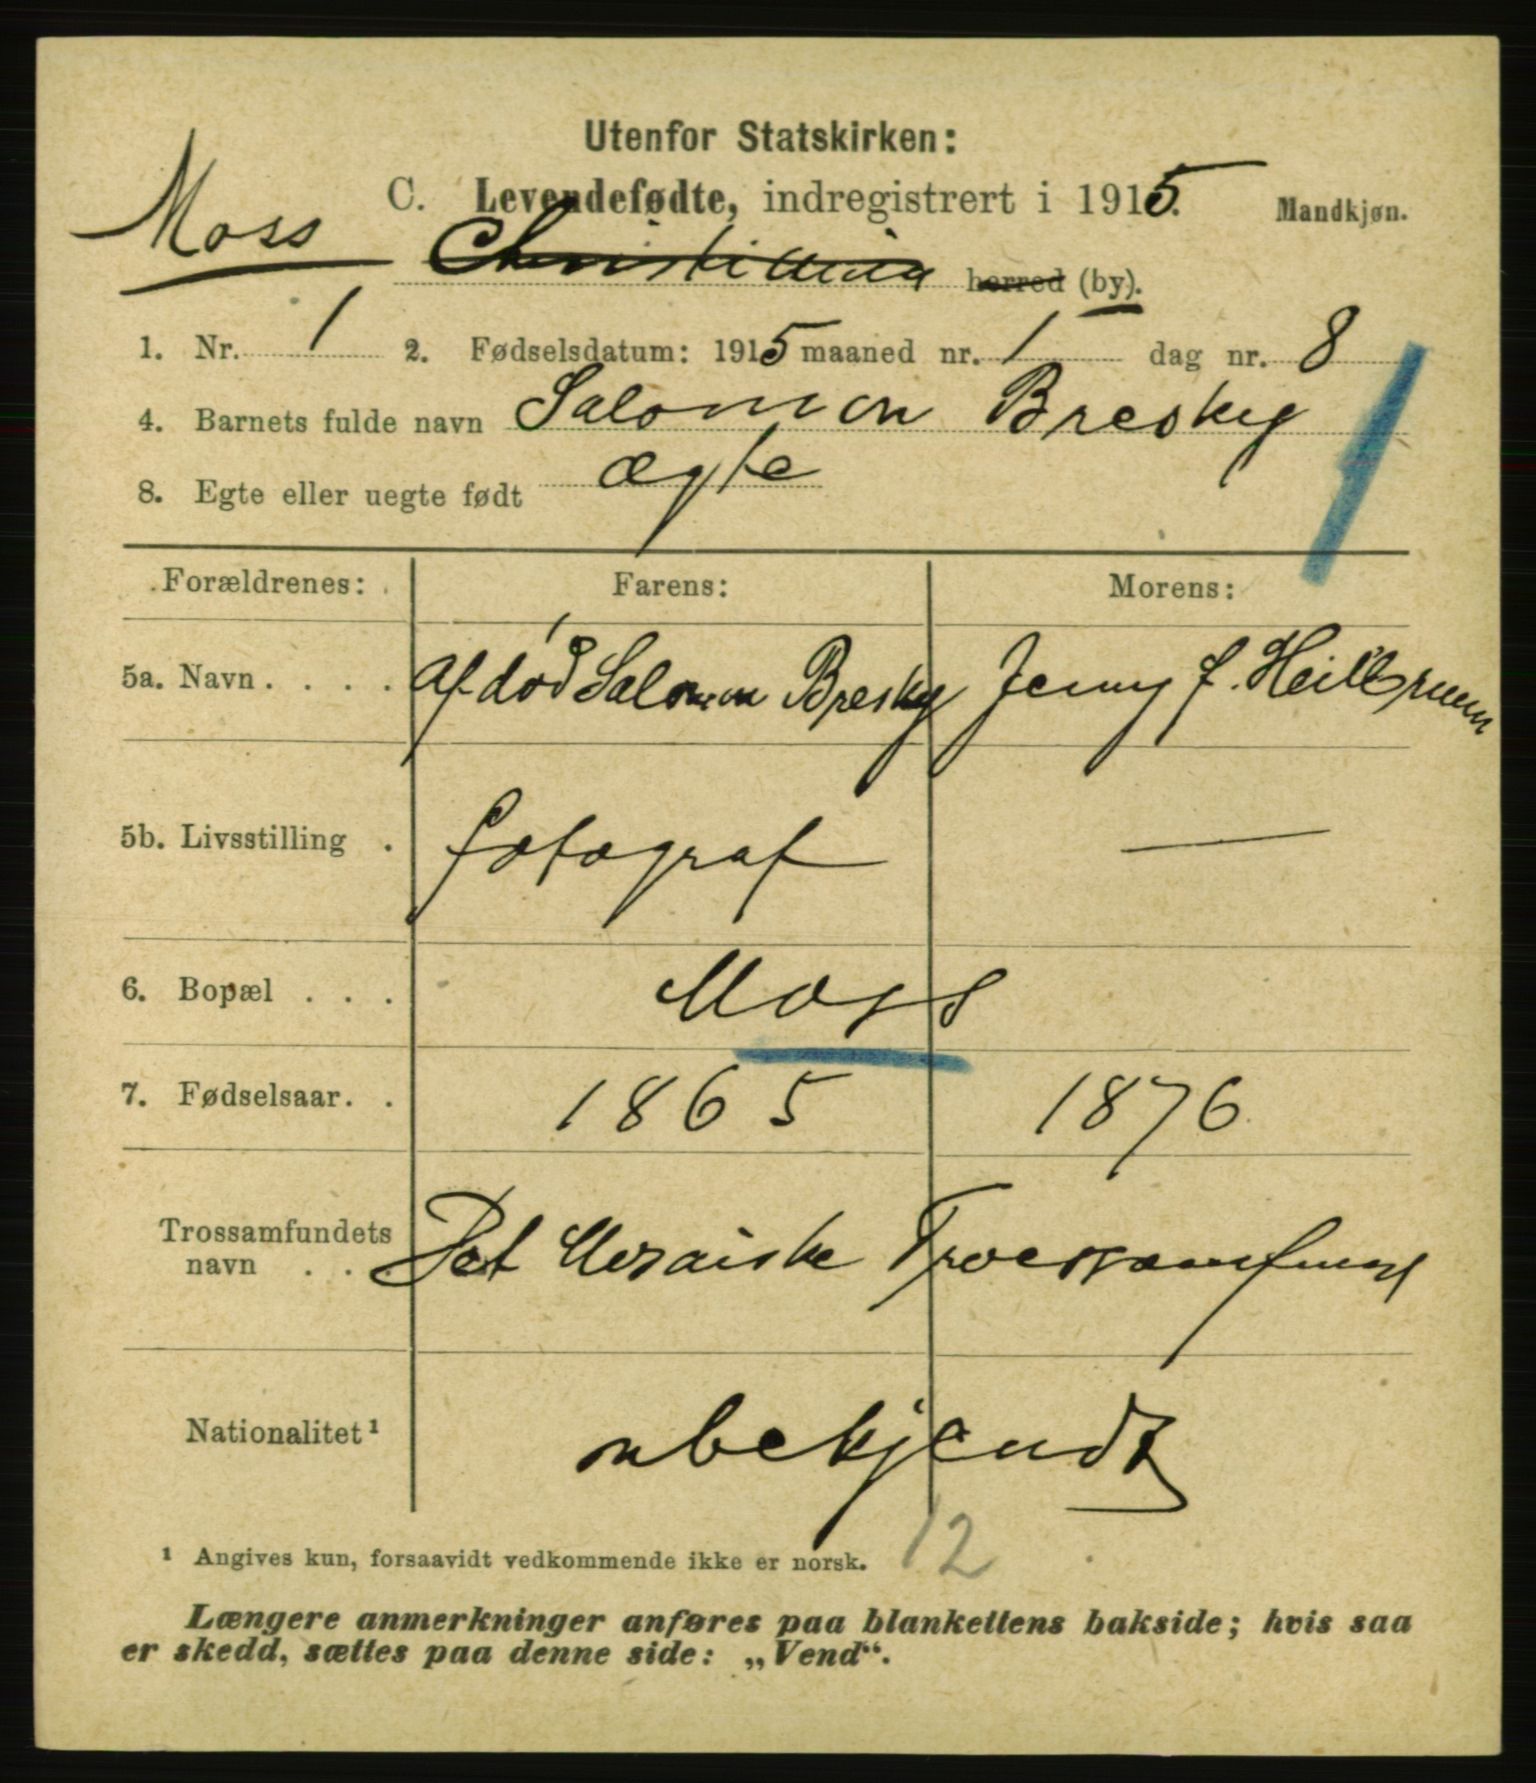 Utenfor Statskirken:
C. Levendefødte, indregistrert i 1915. Mandkjøn.
Moss Christiania herred (by).
1. Nr. 1 2. Fødselsdatum: 1915 maaned nr. 1 dag nr. 8
4. Barnets fulde navn Salomon Bresky
8. Egte eller uegte født ægte
Forældrenes: Farens: Morens:
5a. Navn . . . . Afdød Salomon Bresky Jenny f. Heilbrunn
5b. Livsstilling . fotograf —
6. Bopæl . . . Moss
7. Fødselsaar. . 1865 1876
Trossamfundets
navn . . . Det Mosaiske Troessamfund
Nationalitet¹ ubekjendt
12
¹ Angives kun, forsaavidt vedkommende ikke er norsk.
Længere anmerkninger anføres paa blankettens bakside; hvis saa
er skedd, sættes paa denne side: „Vend“.